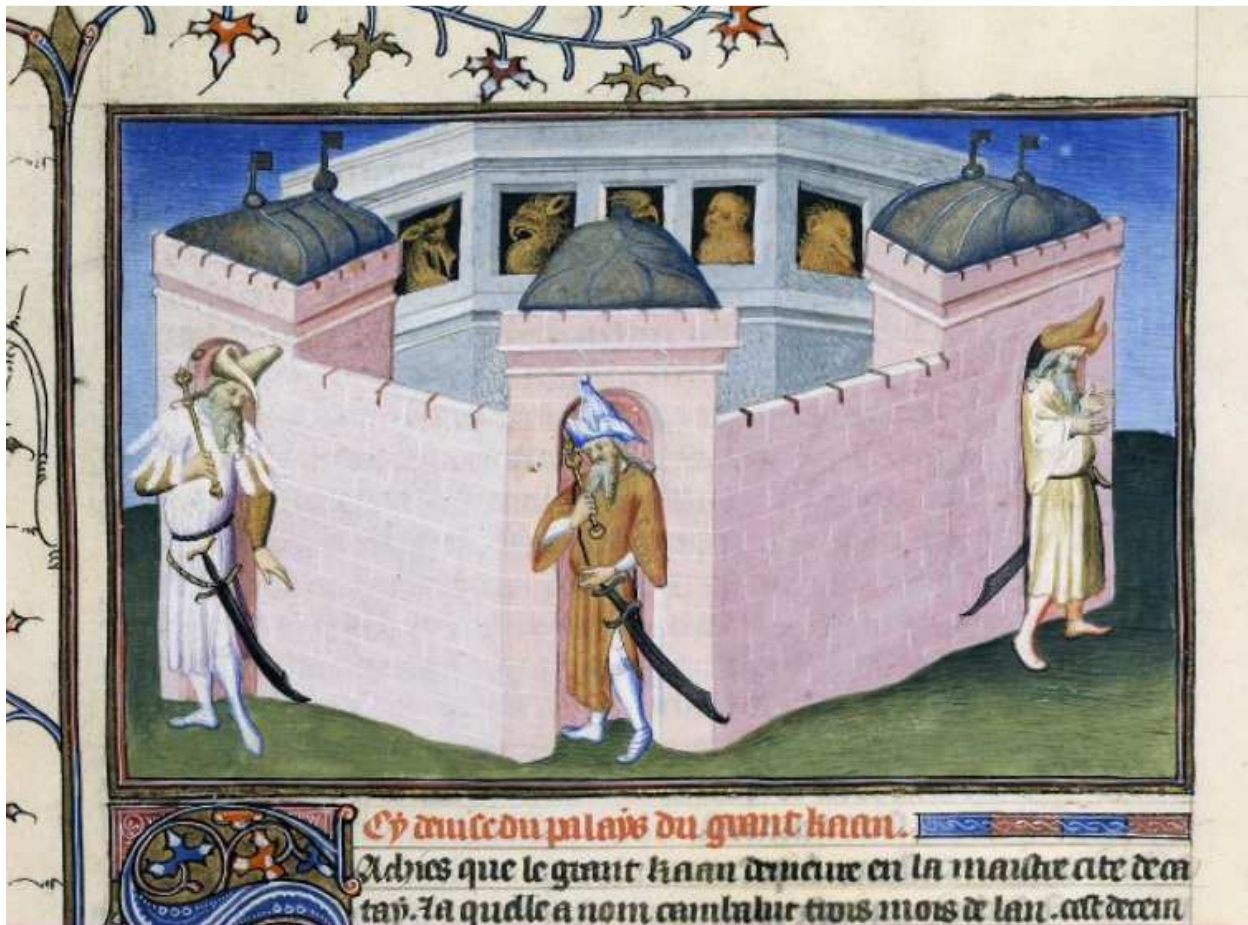 Cy deuise du palays du grant kaan.
Sachies que le grant kaan demeure en la maistre cite de ca
tay. la quelle a nom cambaluc trois mois de lan. cest decem